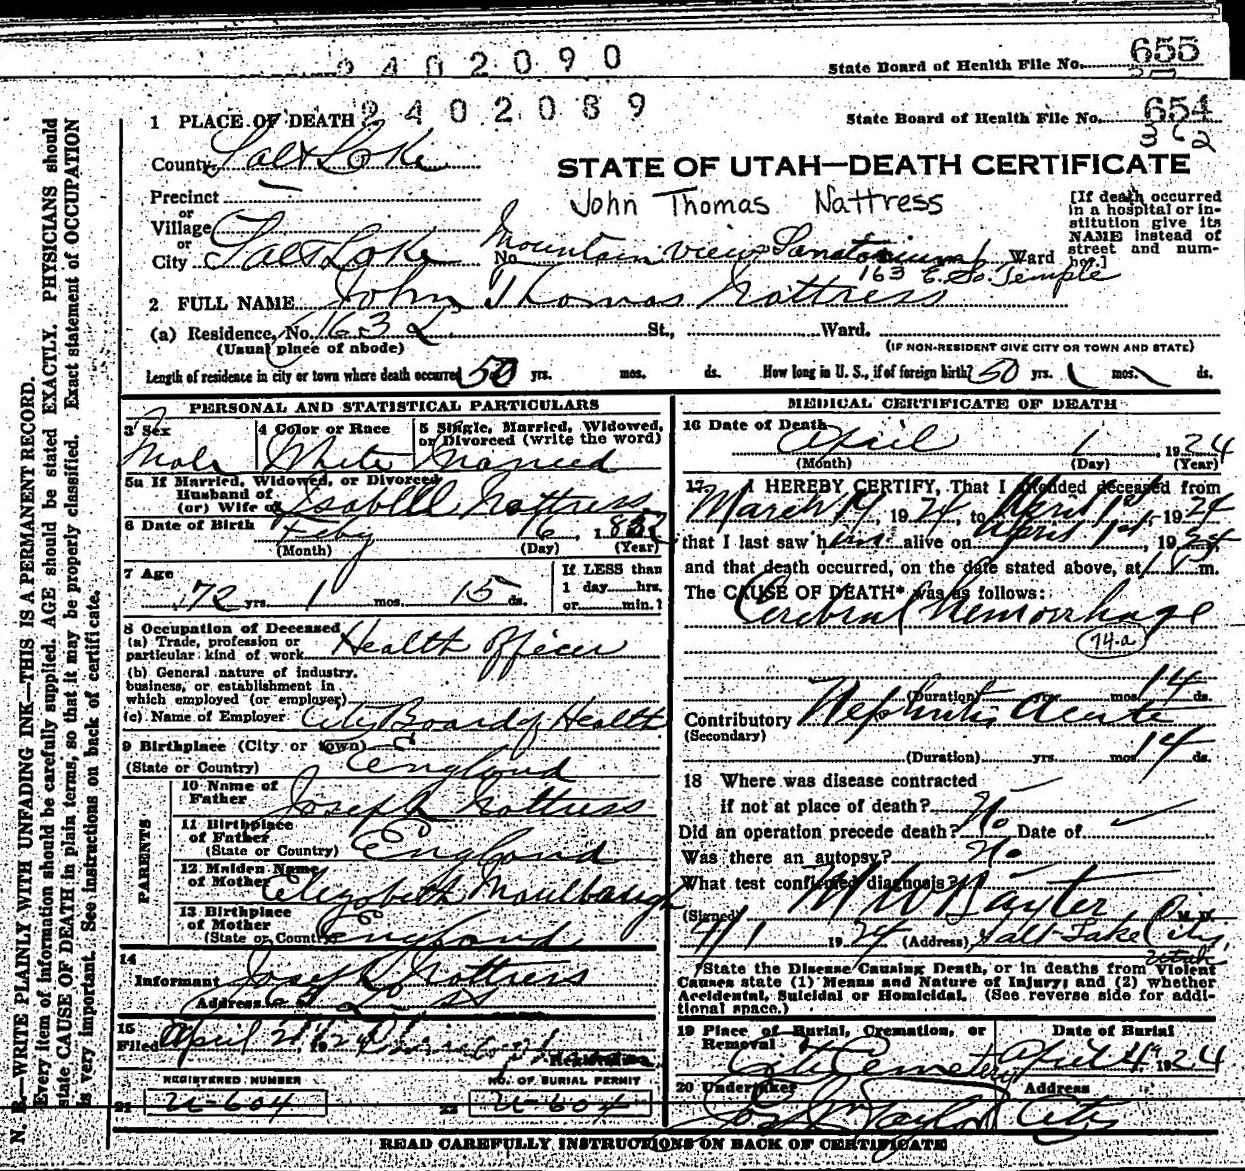 2402090
State Board of Health File No. 655
2402089
State Board of Health File No. 654
362
1 PLACE OF DEATH
County Salt Lake
STATE OF UTAH—DEATH CERTIFICATE
Precinct —
John Thomas Nattress
or
Village
or
City Salt Lake No. Mountain View Sanatorium Ward
163 E. So. Temple
[If death occurred in a hospital or institution give its NAME instead of street and number.]
2 FULL NAME John Thomas Nattress
(a) Residence, No. 163 St., Ward.
(Usual place of abode) (IF NON-RESIDENT GIVE CITY OR TOWN AND STATE)
Length of residence in city or town where death occurred 50 yrs. mos. ds. How long in U. S., if of foreign birth? 50 yrs. mos. ds.
PERSONAL AND STATISTICAL PARTICULARS
3 Sex 4 Color or Race 5 Single, Married, Widowed, or Divorced (write the word)
Male White Married
5a If Married, Widowed, or Divorced
Husband of
(or) Wife of Isabell Nattress
6 Date of Birth Feby 16, 1852
(Month) (Day) (Year)
7 Age If LESS than
72 yrs. 1 mos. 15 ds. 1 day......hrs.
or......min.?
8 Occupation of Deceased
(a) Trade, profession or
particular kind of work Health Officer
(b) General nature of industry,
business, or establishment in
which employed (or employer)
(c) Name of Employer City Board of Health
9 Birthplace (City or town)
(State or Country) England
PARENTS
10 Name of
Father Joseph Nattress
11 Birthplace
of Father
(State or Country) England
12 Maiden Name
of Mother Elizabeth Maulbaugh
13 Birthplace
of Mother
(State or Country) England
14
Informant Joseph Nattress
Address
15
Filed April 2
Registrar
REGISTERED NUMBER NO. OF BURIAL PERMIT
21 U-604 22 U-604
MEDICAL CERTIFICATE OF DEATH
16 Date of Death April 1, 1924
(Month) (Day) (Year)
17 I HEREBY CERTIFY, That I attended deceased from
March 19, 1924, to April 1st, 1924
that I last saw him alive on April 1st, 1924
and that death occurred, on the date stated above, at m.
The CAUSE OF DEATH* was as follows:
Cerebral Hemorrhage
74-a
(Duration) yrs. mos. 14 ds.
Contributory Nephritis Acute
(Secondary)
(Duration) yrs. mos. 14 ds.
18 Where was disease contracted
if not at place of death?
Did an operation precede death? No Date of
Was there an autopsy? No
What test confirmed diagnosis?
(Signed) M W Baxter M. D.
4/1 1924 (Address) Salt Lake City,
Utah
*State the Disease Causing Death, or in deaths from Violent
Causes state (1) Means and Nature of Injury; and (2) whether
Accidental, Suicidal or Homicidal. (See reverse side for addi-
tional space.)
19 Place of Burial, Cremation, or Removal Date of Burial
City Cemetery April 4th 1924
20 Undertaker Address
Jos Wm Taylor City
READ CAREFULLY INSTRUCTIONS ON BACK OF CERTIFICATE
N. B.—WRITE PLAINLY WITH UNFADING INK—THIS IS A PERMANENT RECORD.
Every item of information should be carefully supplied. AGE should be stated EXACTLY. PHYSICIANS should
state CAUSE OF DEATH in plain terms, so that it may be properly classified. Exact statement of OCCUPATION
is very important. See instructions on back of certificate.